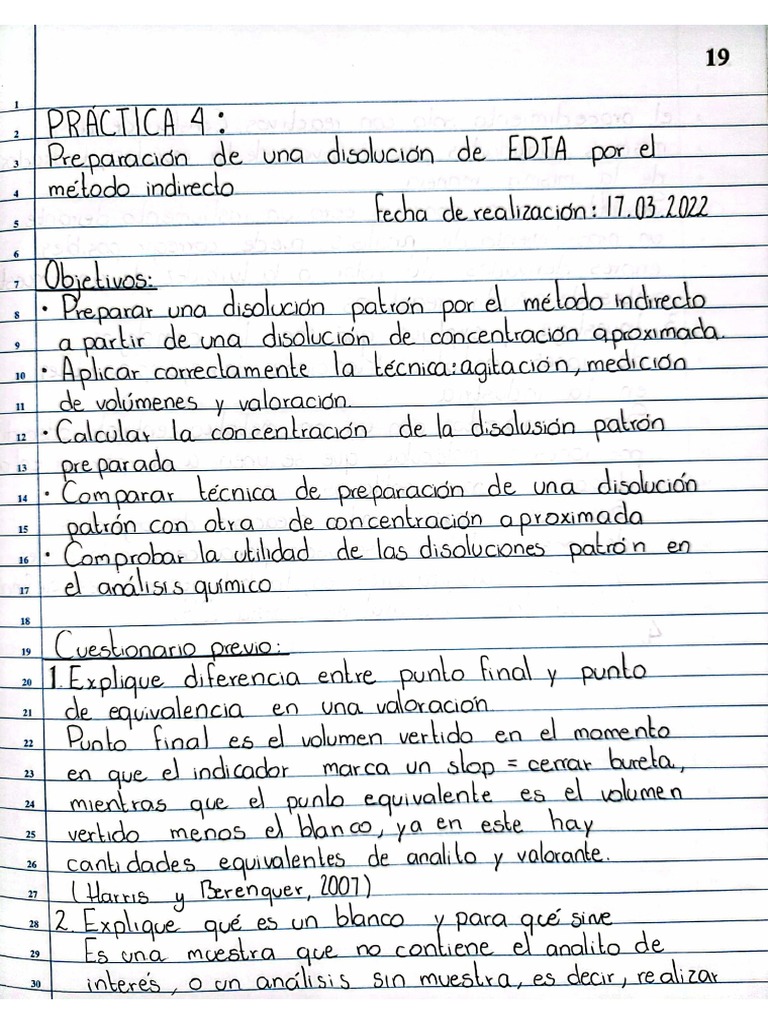 19
1
2 PRÁCTICA 4:
3 Preparación de una disolución de EDTA por el
4 método indirecto
5 fecha de realización: 17.03.2022
6
7 Objetivos:
8 • Preparar una disolución patrón por el método indirecto
9 a partir de una disolución de concentración aproximada.
10 • Aplicar correctamente la técnica: agitación, medición
11 de volúmenes y valoración.
12 • Calcular la concentración de la disolusión patrón
13 preparada
14 • Comparar técnica de preparación de una disolución
15 patrón con otra de concentración aproximada
16 • Comprobar la utilidad de las disoluciones patrón en
17 el análisis químico
18
19 Cuestionario previo:
20 1. Explique diferencia entre punto final y punto
21 de equivalencia en una valoración.
22 Punto final es el volumen vertido en el momento
23 en que el indicador marca un stop = cerrar bureta,
24 mientras que el punto equivalente es el volumen
25 vertido menos el blanco, ya en este hay
26 cantidades equivalentes de analito y valorante.
27 (Harris y Berenguer, 2007)
28 2. Explique qué es un blanco y para qué sirve
29 Es una muestra que no contiene el analito de
30 interés, o un análisis sin muestra, es decir, realizar